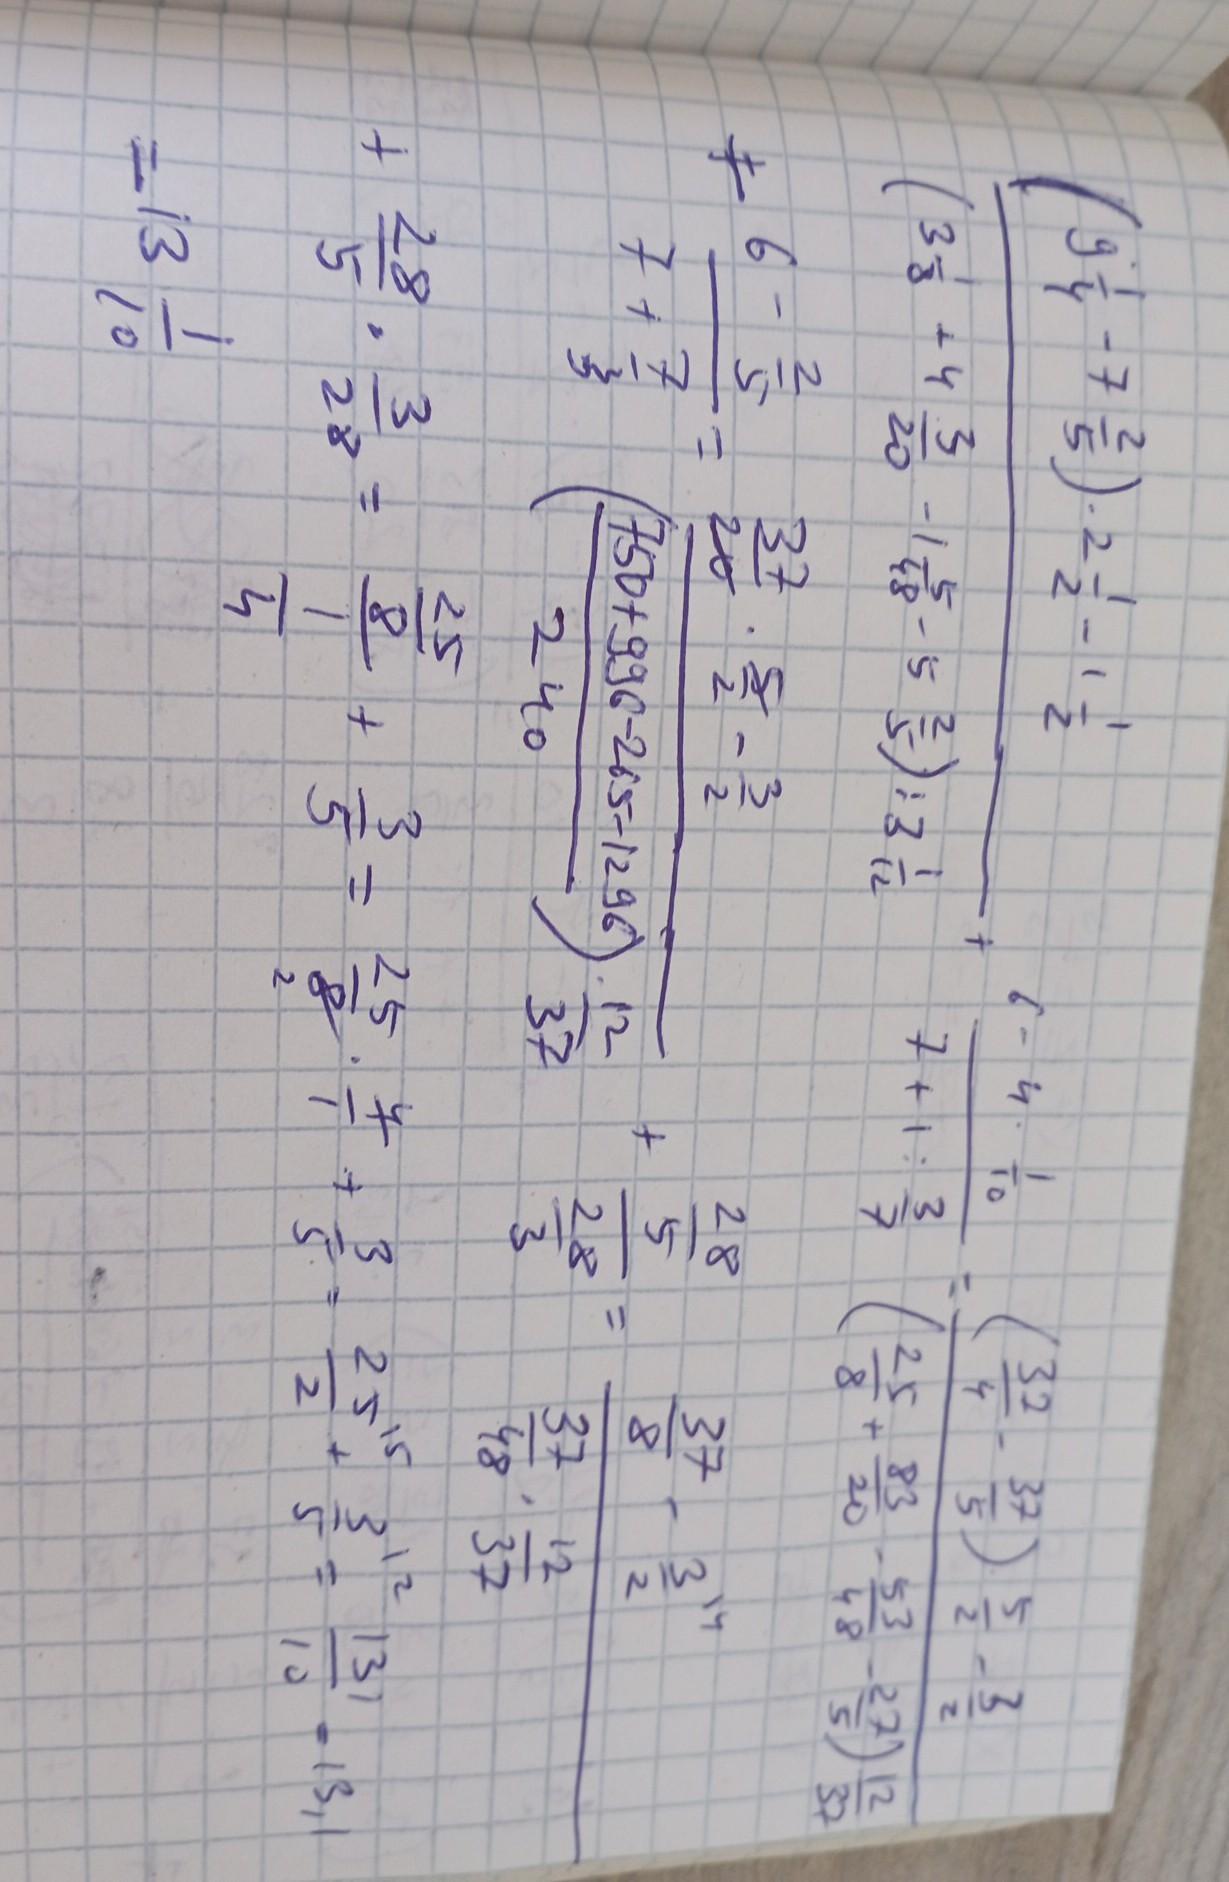 (9 1/4 - 7 2/5) · 2 1/2 - 1 1/2
(3 1/8 + 4 3/20 - 1 5/48 - 5 2/5) : 3 1/12
+
6 - 4 · 1/10
7 + 1 : 3/7
=
(37/4 - 37/5) 5/2 - 3/2
(25/8 + 83/20 - 53/48 - 27/5) 12/37
+
6 - 2/5
7 + 7/3
=
37/20 · 5/2 - 3/2
(750+996-265-1296 / 240) · 12/37
+
28/5
28/3
=
37/8 - 3/2 \4
37/48 · 12/37
+ 28/5 · 3/28 = 25/8 / 1/4 + 3/5 = 25/8 2 · 4/1 + 3/5 = 25/2 \5 + 3/5 \2 = 131/10 = 13,1
= 13 1/10